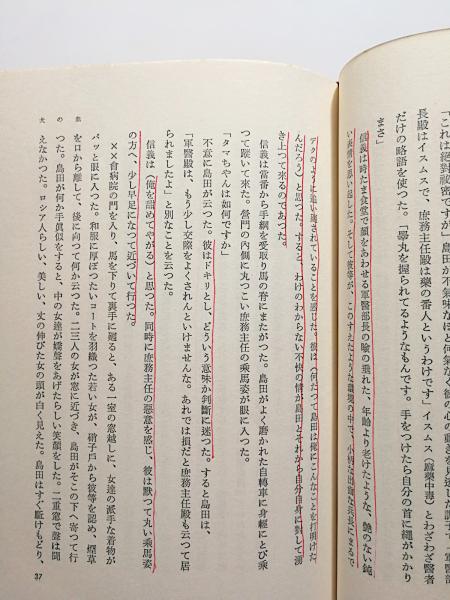 「これは絶對祕密ですが」島田が不氣味なほど彼の心の動きを見透した調子で、
長殿はイスムスで、庶務主任殿は藥の番人というわけです」イスムス（麻藥中毒）とわざわざ醫者
だけの略語を使つた。「睾丸を握られてるようなもんです。手をつけたら自分の首に繩がかかり
まさ」
信義は時たま食堂で顏をあわせる軍醫部長の瞼の垂れた、年齡より老けたような、艶のない鈍
い表情を思い起した。そして彼等が、このすえたような環境の中で、小柄な出齒な兵長にまるで
デクのように追い廻されていることを感じた。彼は（何だつて島田は俺にこんなことを打明けた
んだろう）と思つた。すると、わけのわからない不快の情が島田とそれから自分自身に對して湧
き上つて來るのであつた。
信義は當番から手綱を受取り馬の脊にまたがつた。島田がよく磨かれた自轉車に身輕にとび乘
つて蹤いて來た。營門の内側に丸つこい庶務主任の乘馬姿が眼に入つた。
「タマちやんは如何ですか」
不意に島田が云つた。彼はドキリとし、どういう意味か判斷に迷つた。すると島田は、
「軍醫殿は、もう少し交際をよくされんといけませんな。あれでは損だと庶務主任殿も云つて居
られましたよ」と別なことを云つた。
信義は（俺を嘗めてやがる）と思つた。同時に庶務主任の惡意を感じ、彼は默つて丸い乘馬姿
の方へ、少し早足になつて近づいて行つた。
××會病院の門を入り、馬を下りて裏手に廻ると、ある一室の窓越しに、女達の派手な着物が
パッと眼に入つた。和服に厚ぼつたいコートを羽織つた若い女が、硝子戸から彼等を認め、煙草
を口から離して、後に向つて何か云つた。二三人の女が窓に近づき、島田がそこの下へ寄つて行
つた。島田が何か手眞似をすると、中の女達が嬌聲をあげたらしい笑顏をした。二重窓で聲は聞
えなかつた。ロシア人らしい、美しい、丈の伸びた女の頭が白く見えた。島田はすぐ駈けもどり、
の
犬
37